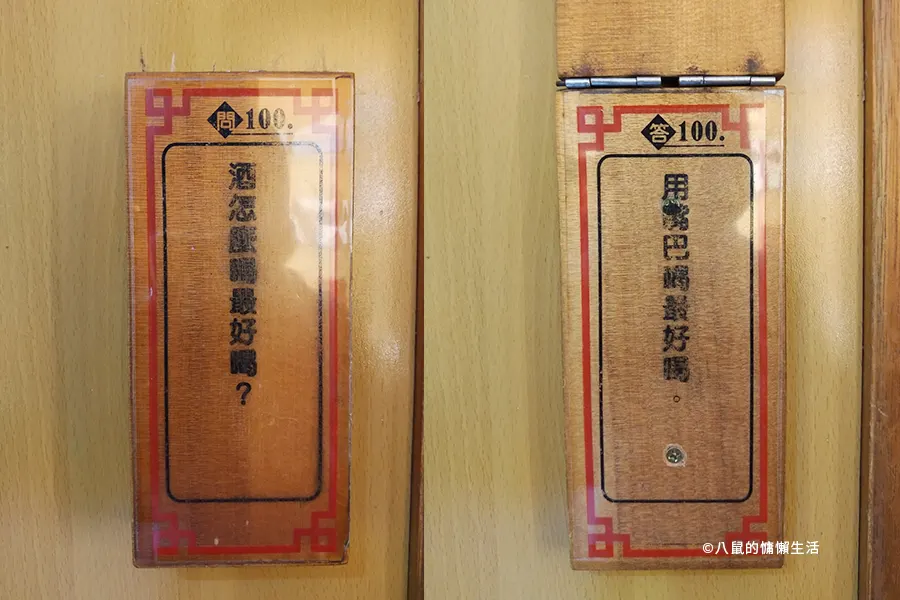 問 100.
酒怎麼喝最好喝？
答 100.
用嘴巴喝最好喝。
©八鼠的慵懶生活